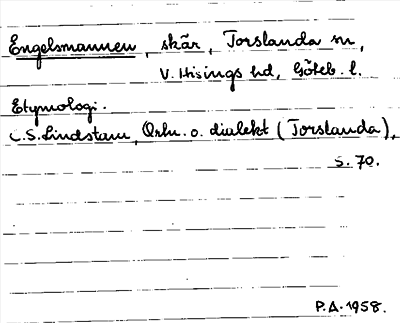 Engelsmannen, skär, Torslanda sn,
V. Hisings hd, Göteb. l.
Etymologi.
C.S. Lindstam, Ortn. o. dialekt (Torslanda),
s. 70.
P.A. 1958.